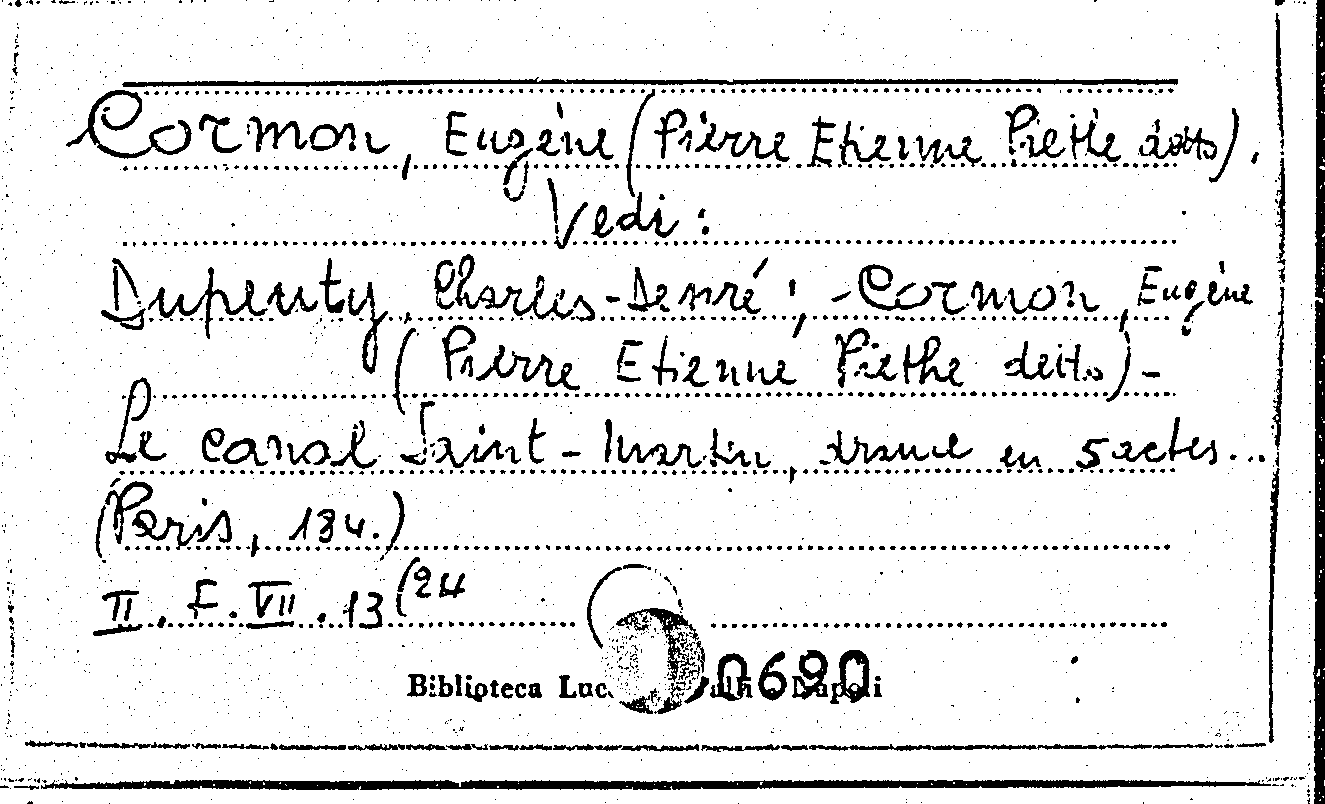 Cormon, Eugène (Pierre Etienne Piethe detto).
Vedi:
Dupeuty, Charles-Désiré; - Cormon, Eugène
(Pierre Etienne Piethe detto) -
Le canal Saint-Martin, drame en 5 actes...
(Paris, 184.)
II. F. VII. 13 (24
Biblioteca Napoli
0690